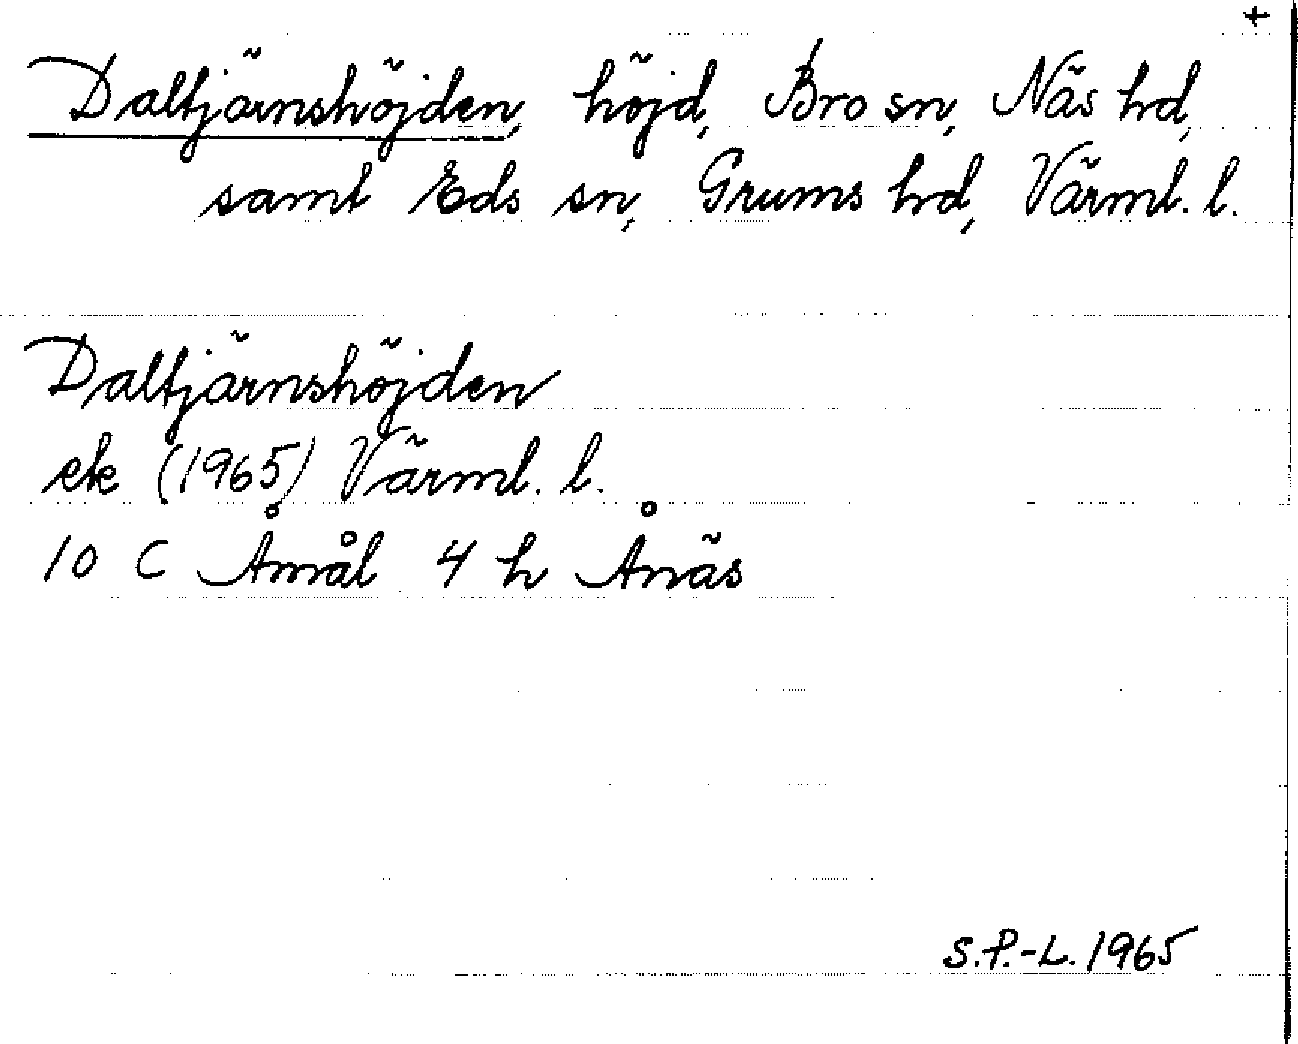 +
Daltjärnshöjden, höjd, Bro sn, Näs hd,
samt Eds sn, Grums hd, Värml. l.
Daltjärnshöjden
ek (1965) Värml. l.
10 C Åmål 4 h Ånäs
S.P.-L. 1965